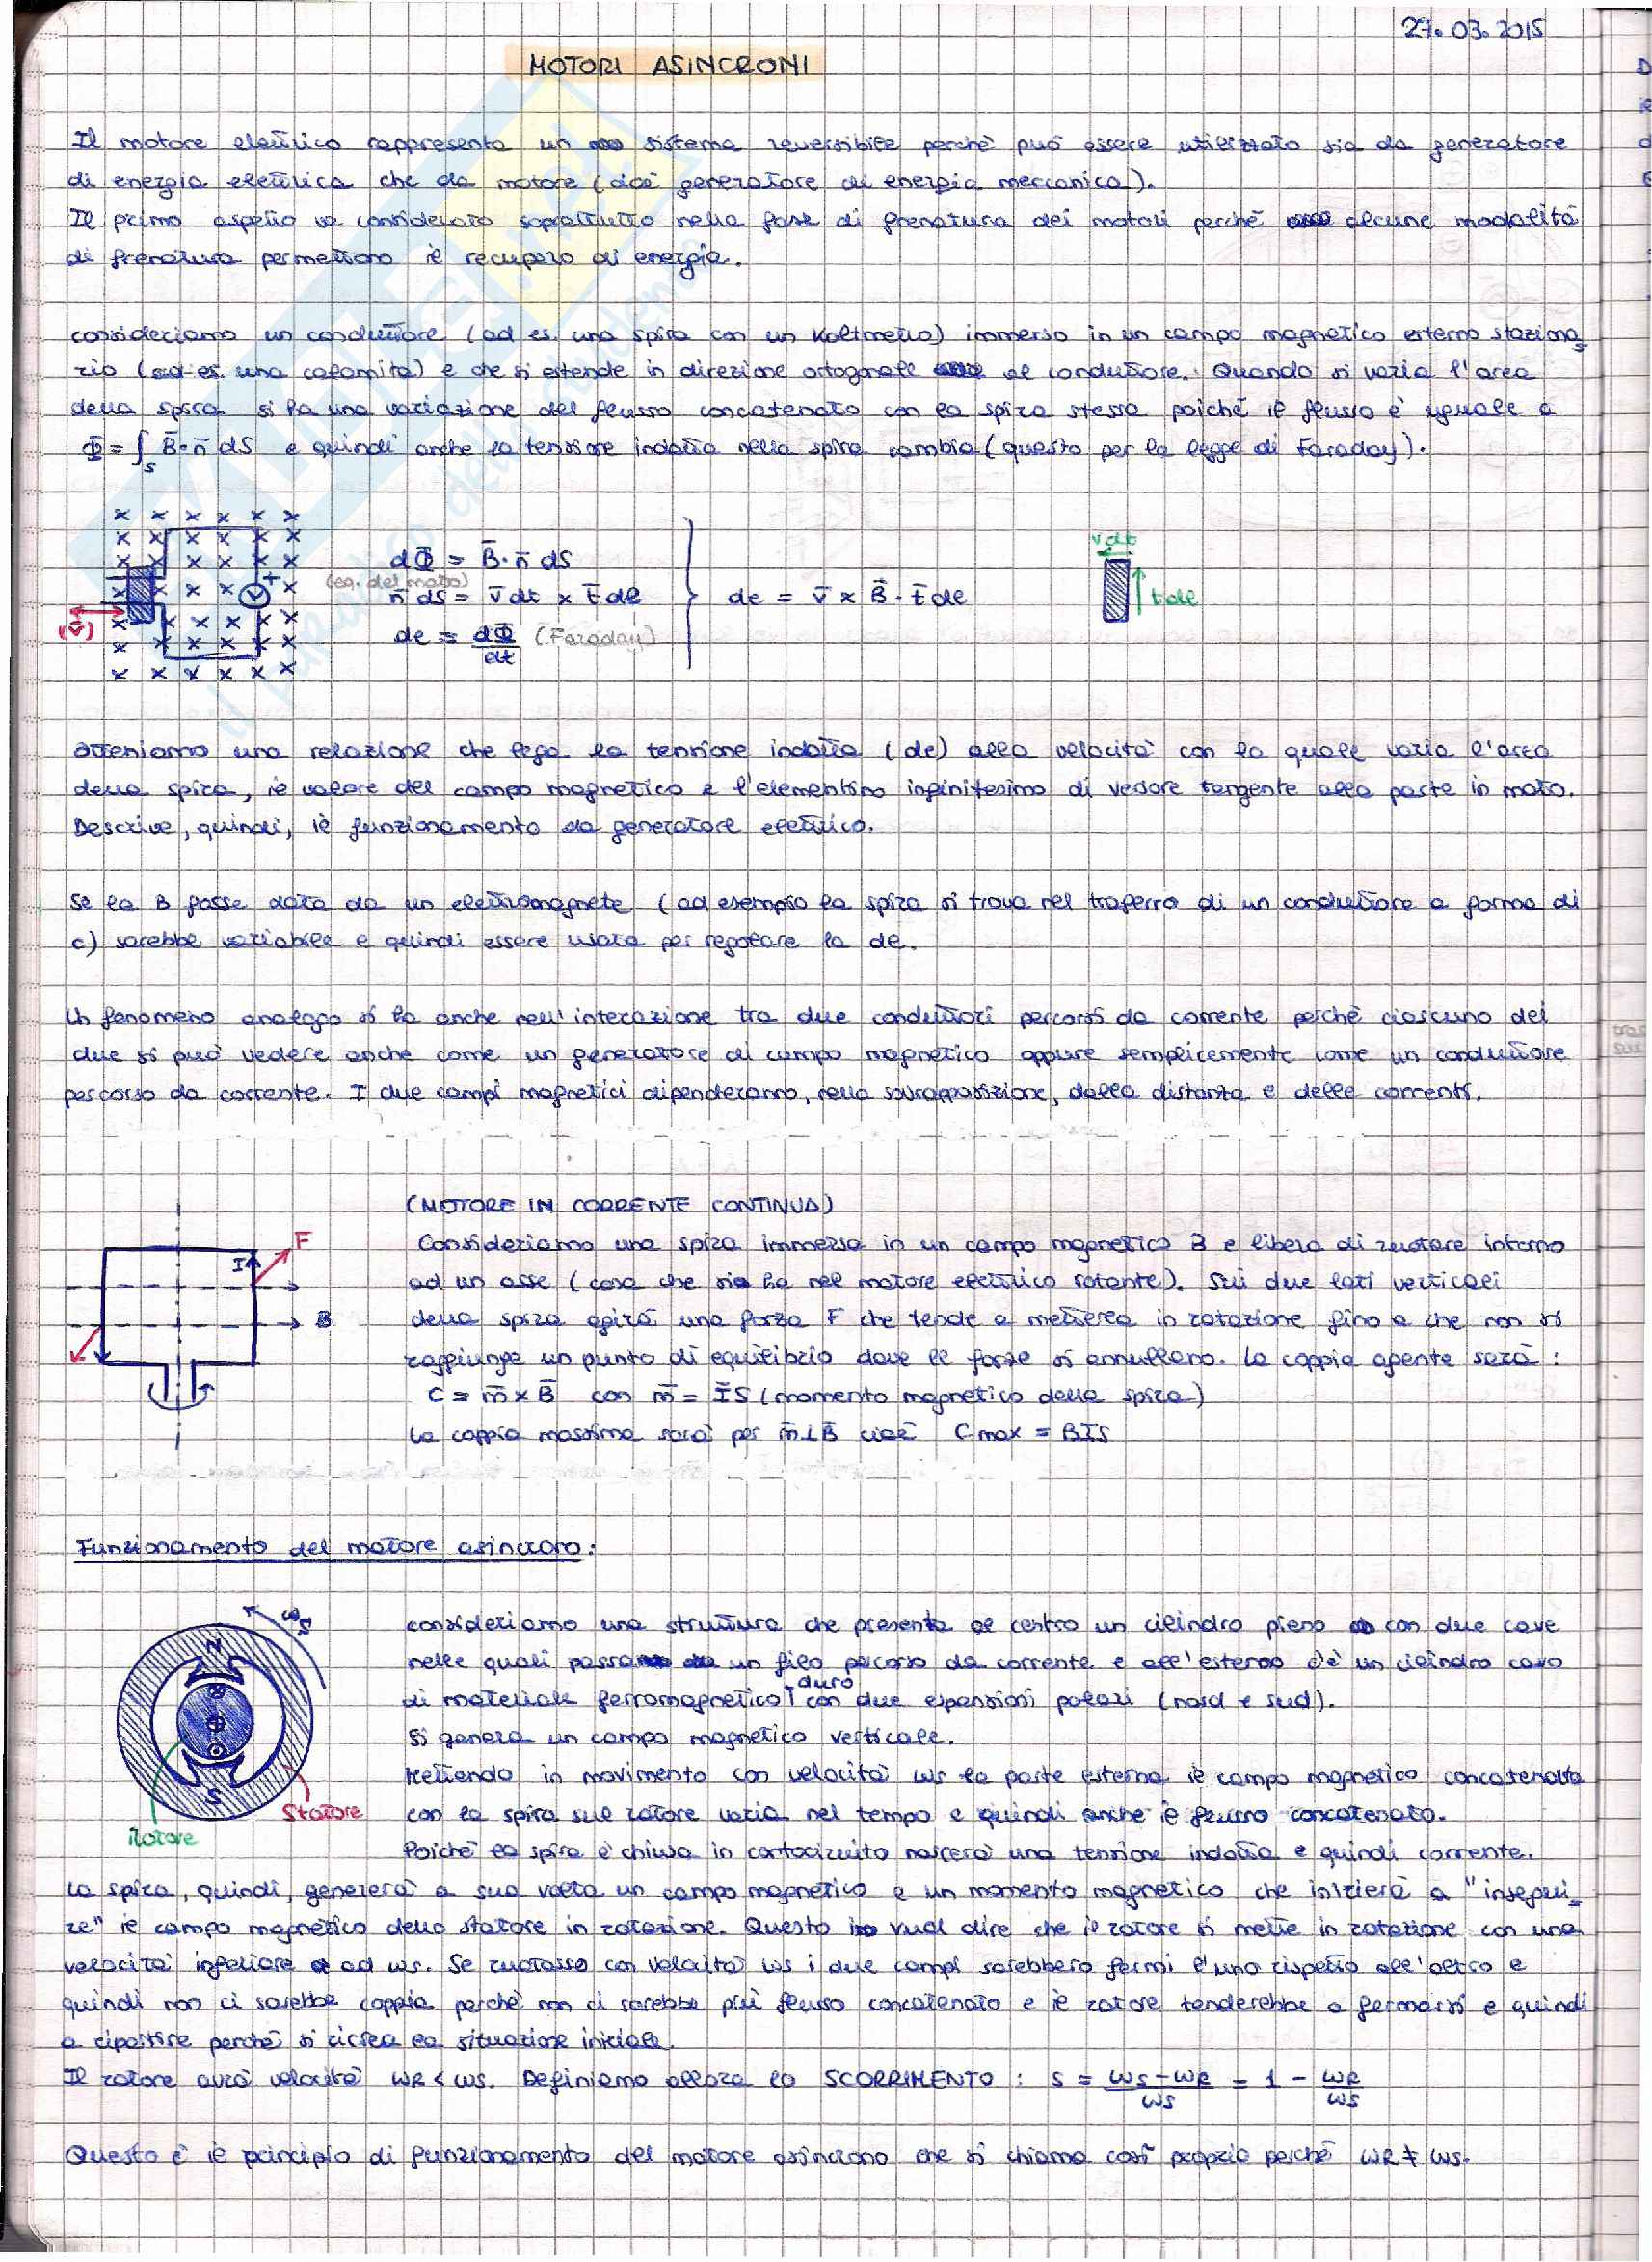 27.03.2015
MOTORI ASINCRONI
Il motore elettrico rappresenta un sistema reversibile perchè può essere utilizzato sia da generatore
di energia elettrica che da motore (cioè generatore di energia meccanica).
Il primo aspetto va considerato soprattutto nella fase di frenatura dei motori perchè alcune modalità
di frenatura permettono il recupero di energia.
consideriamo un conduttore (ad es. una spira con un Voltmetro) immerso in un campo magnetico esterno staziona
rio (ad es. una calamita) e che si estende in direzione ortogonale al conduttore. Quando si varia l'area
della spira si ha una variazione del flusso concatenato con la spira stessa poichè il flusso è uguale a
Φ = ∫s B̄·n̄ dS e quindi anche la tensione indotta nella spira cambia (questo per la legge di Faraday).
dΦ = B̄·n̄ dS
(eq. del moto)
n̄ dS = v̄ dt × t̄ dl
de = dΦ/dt (Faraday)
de = v̄ × B̄ · t̄ dl
v dt
t dl
(v̄)
V
+
otteniamo una relazione che lega la tensione indotta (de) alla velocità con la quale varia l'area
della spira, il valore del campo magnetico e l'elementino infinitesimo di versore tangente alla parte in moto.
Descrive, quindi, il funzionamento da generatore elettrico.
Se la B fosse data da un elettromagnete (ad esempio la spira si trova nel traferro di un conduttore a forma di
c) sarebbe variabile e quindi essere usata per regolare la de.
Un fenomeno analogo si ha anche nell'interazione tra due conduttori percorsi da corrente perchè ciascuno dei
due si può vedere anche come un generatore di campo magnetico oppure semplicemente come un conduttore
percorso da corrente. I due campi magnetici dipenderanno, nella sovrapposizione, dalla distanza e delle correnti.
(MOTORE IN CORRENTE CONTINUA)
Consideriamo una spira immersa in un campo magnetico B e libera di ruotare intorno
ad un asse (cosa che si ha nel motore elettrico rotante). Sui due lati verticali
della spira agirà una forza F che tende a metterla in rotazione fino a che non si
raggiunge un punto di equilibrio dove le forze si annullano. La coppia agente sarà:
C = m̄ × B̄ con m̄ = ĪS (momento magnetico della spira)
La coppia massima sarà per m̄⊥B̄ cioè Cmax = BIS
F
I
B
Funzionamento del motore asincrono:
consideriamo una struttura che presenta al centro un cilindro pieno con due cave
nelle quali passa un filo percorso da corrente e all'esterno c'è un cilindro cavo
di materiale ferromagnetico duro con due espansioni polari (nord e sud).
Si genera un campo magnetico verticale.
Mettendo in movimento con velocità ωs la parte esterna il campo magnetico concatenato
con la spira sul rotore varia nel tempo e quindi anche il flusso concatenato.
Poichè la spira è chiusa in cortocircuito nascerà una tensione indotta e quindi corrente.
La spira, quindi, genererà a sua volta un campo magnetico e un momento magnetico che inizierà a "insegui-
re" il campo magnetico dello statore in rotazione. Questo vuol dire che il rotore si mette in rotazione con una
velocità inferiore ad ωs. Se ruotasse con velocità ωs i due campi sarebbero fermi l'uno rispetto all'altro e
quindi non ci sarebbe coppia perchè non ci sarebbe più flusso concatenato e il rotore tenderebbe a fermarsi e quindi
a ripartire perchè si ricrea la situazione iniziale.
Il rotore avrà velocità ωR < ωs. Definiamo allora lo SCORRIMENTO : S = (ωs − ωR)/ωs = 1 − ωR/ωs
Questo è il principio di funzionamento del motore asincrono che si chiama così proprio perchè ωR ≠ ωs.
ωs
N
S
Statore
Rotore